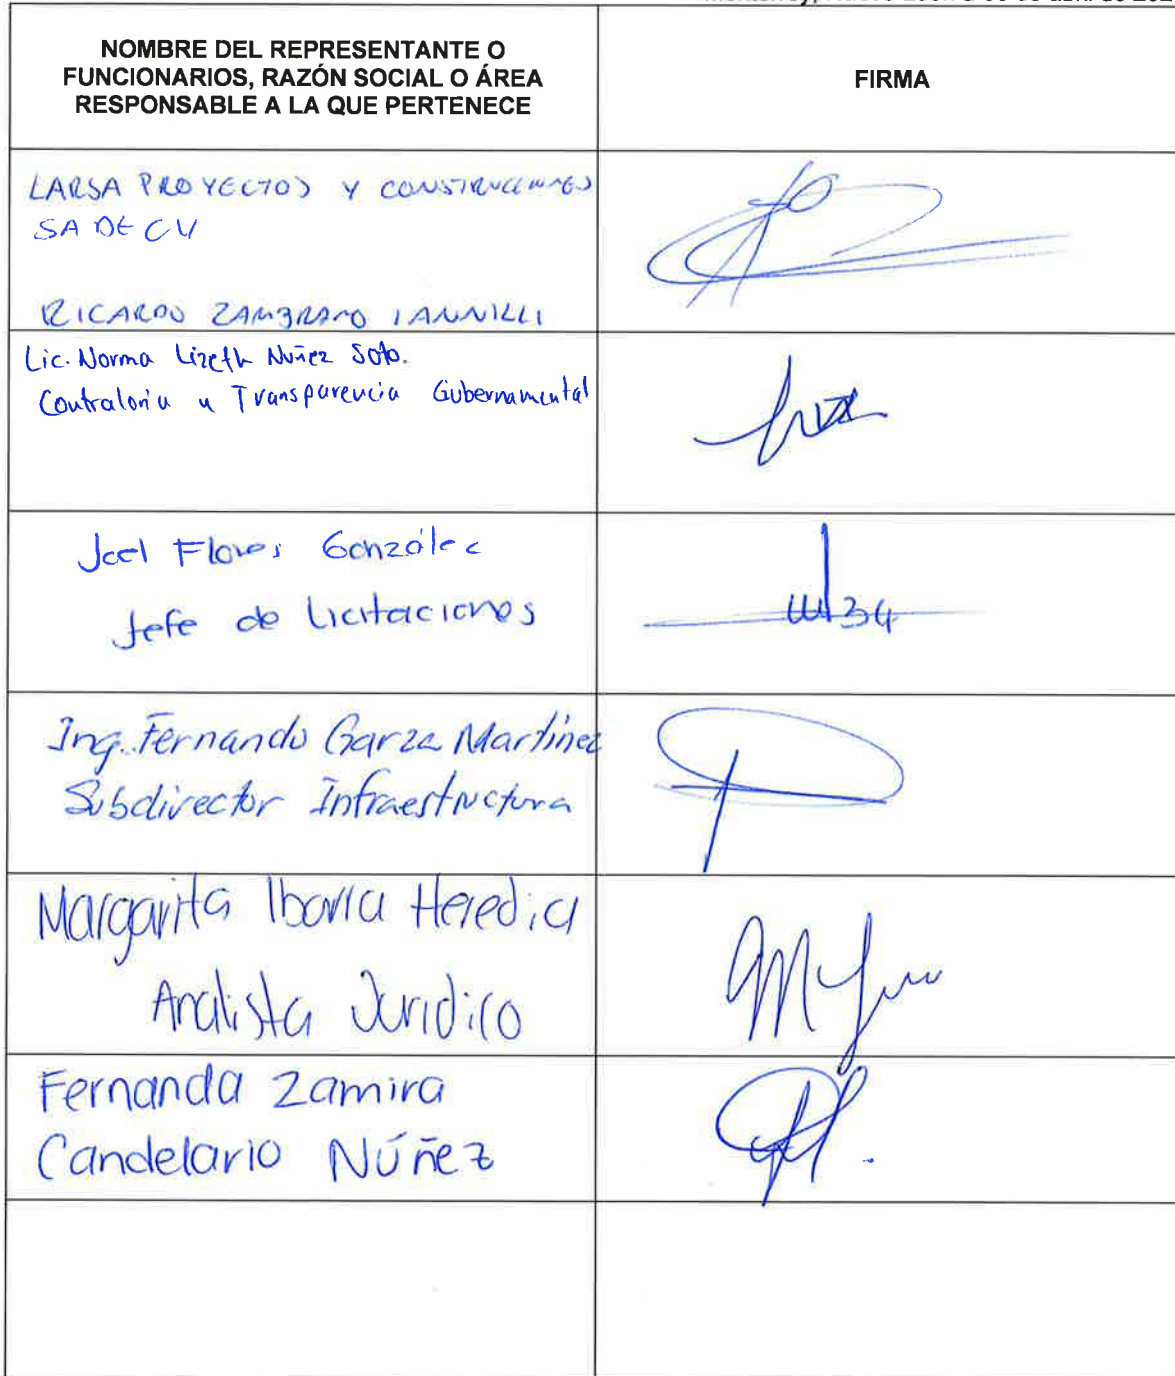 NOMBRE DEL REPRESENTANTE O
FUNCIONARIOS, RAZÓN SOCIAL O ÁREA
RESPONSABLE A LA QUE PERTENECE
FIRMA
LARSA PROYECTOS Y CONSTRUCCIONES
SA DE CV
RICARDO ZAMBRANO IANNILLI
Lic. Norma Lizeth Nuñez Soto.
Contraloria y Transparencia Gubernamental
Joel Flores González
Jefe de Licitaciones
Ing. Fernando Garza Martinez
Subdirector Infraestructura
Margarita Ibarra Heredia
Analista Juridico
Fernanda Zamira
Candelario Núñez